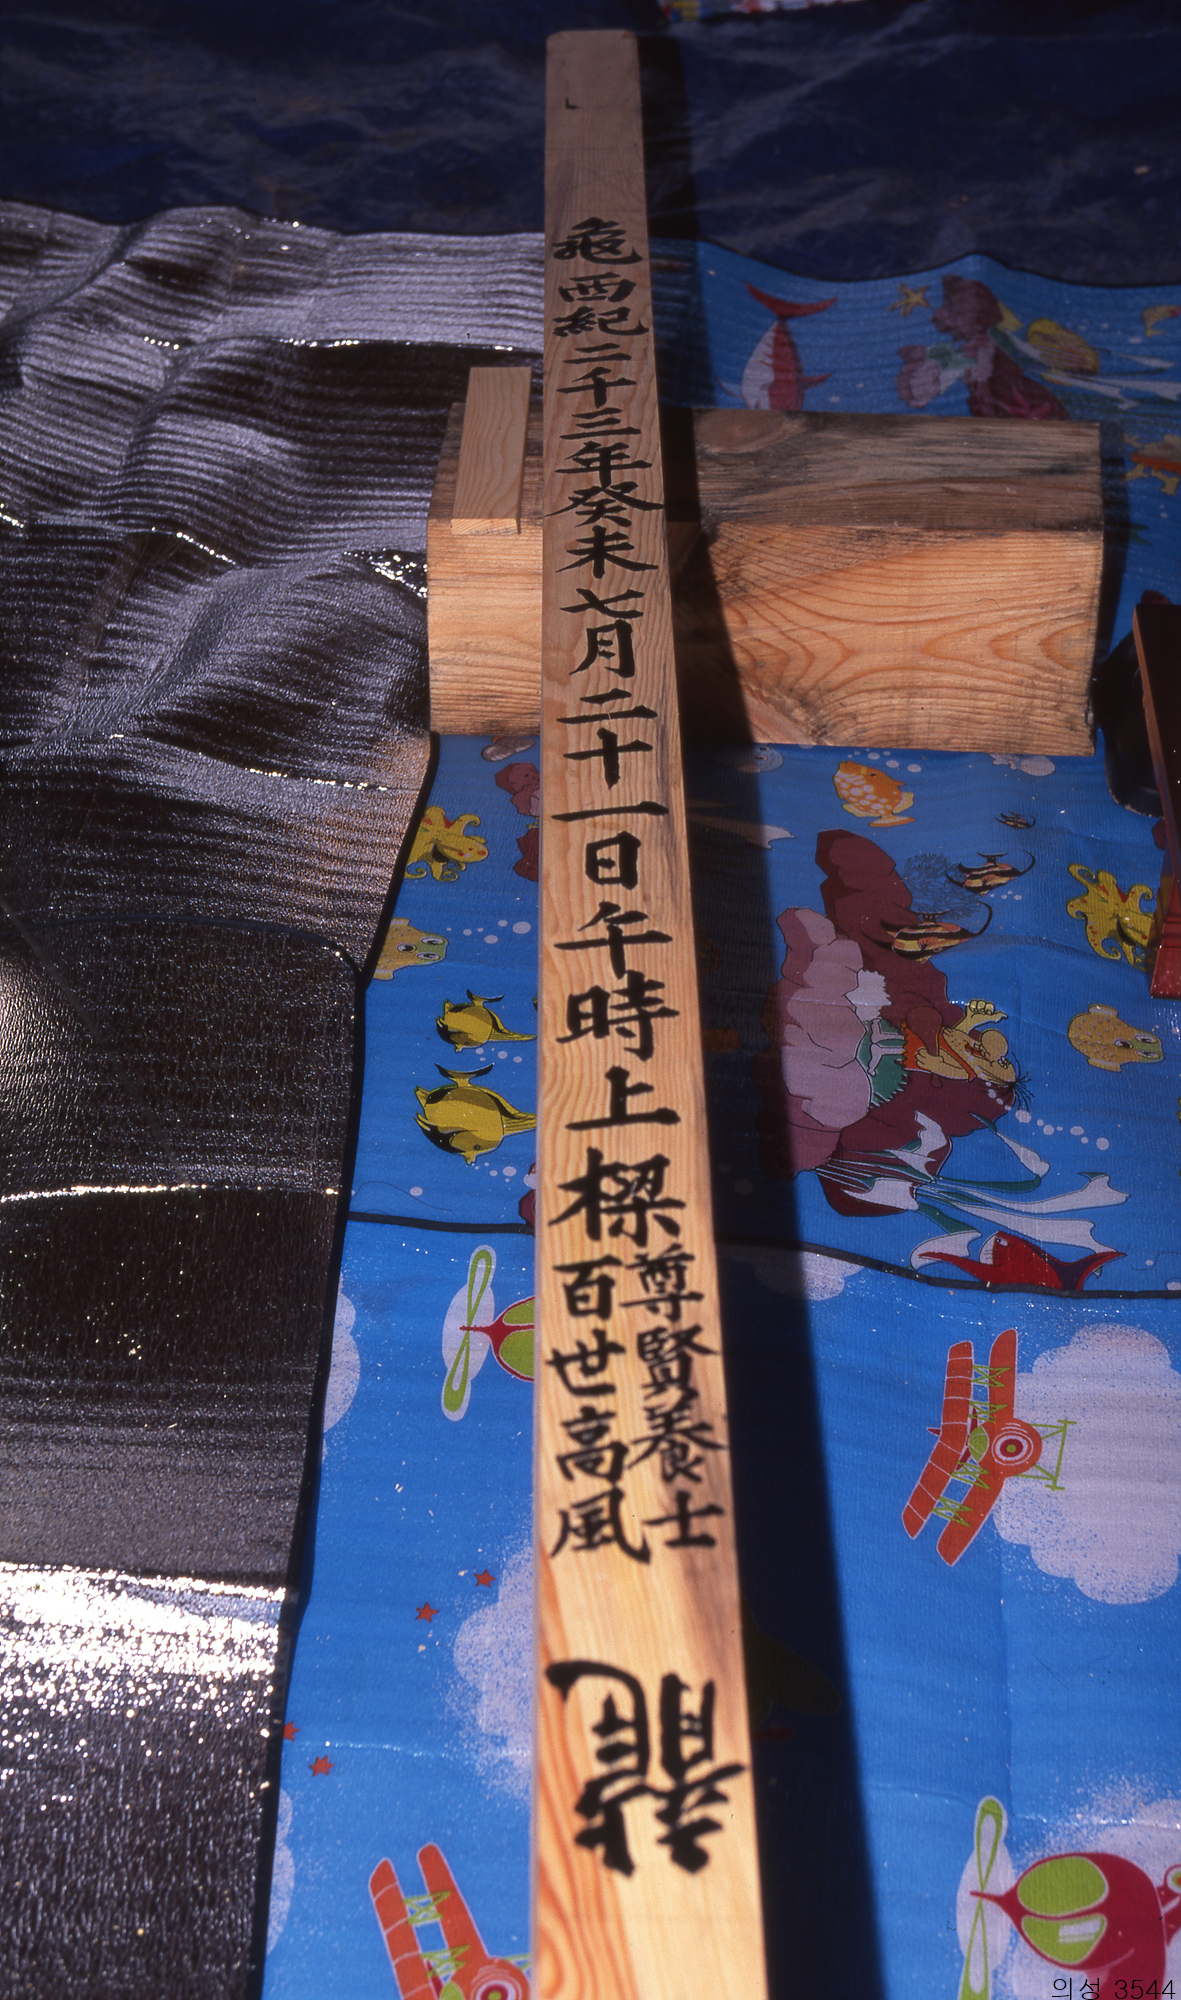 龜西紀二千三年癸未七月二十一日午時上樑
尊賢養士
百世高風
龍
의성 3544